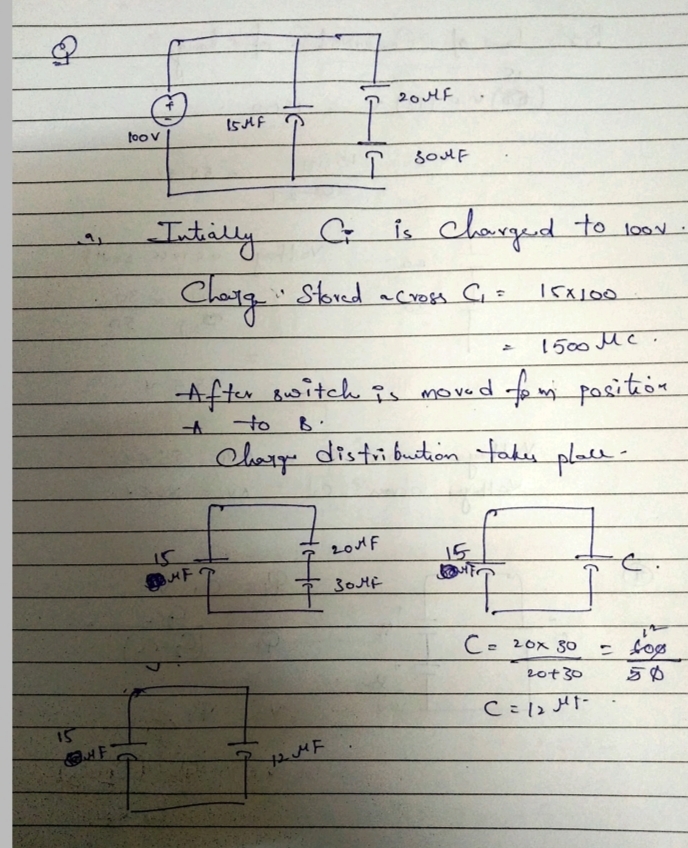 Q
100V
15 μF
20 μF
30 μF
a, Intially C1 is Charged to 100V.
Charg Stored across C1 = 15x100
= 1500 μC.
After switch is moved from position
A to B.
Charge distribution takes place.
15 μF
20 μF
30 μF
15 μF
C.
C = 20x30 / 20+30 = 600 / 50 12
C = 12 μF.
15 μF
12 μF